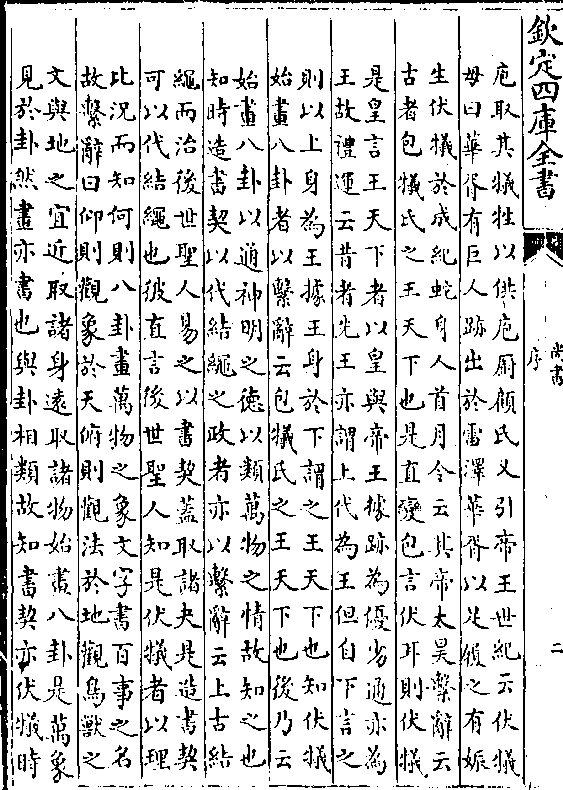 欽定四庫全書
尚書
序
二
庖取其犧牲以供庖厨顧氏又引帝王世紀云伏犧
母曰華胥有巨人跡出於雷澤華胥以足履之有娠
生伏犧於成紀蛇身人首月令云其帝太昊繫辭云
古者包犧氏之王天下也是直變包言伏耳則伏犧
是皇言王天下者以皇與帝王據跡為優劣通亦為
王故禮運云昔者先王亦謂上代為王但自下言之
則以上身為王據王身於下謂之王天下也知伏犧
始畫八卦者以繫辭云包犧氏之王天下也後乃云
始畫八卦以通神明之德以類萬物之情故知之也
知時造書契以代結繩之政者亦以繫辭云上古結
繩而治後世聖人易之以書契蓋取諸夬是造書契
可以代結繩也彼直言後世聖人知是伏犧者以理
比況而知何則八卦畫萬物之象文字書百事之名
故繫辭曰仰則觀象於天俯則觀法於地觀鳥獸之
文與地之宜近取諸身遠取諸物始畫八卦是萬象
見於卦然畫亦書也與卦相類故知書契亦伏犧時